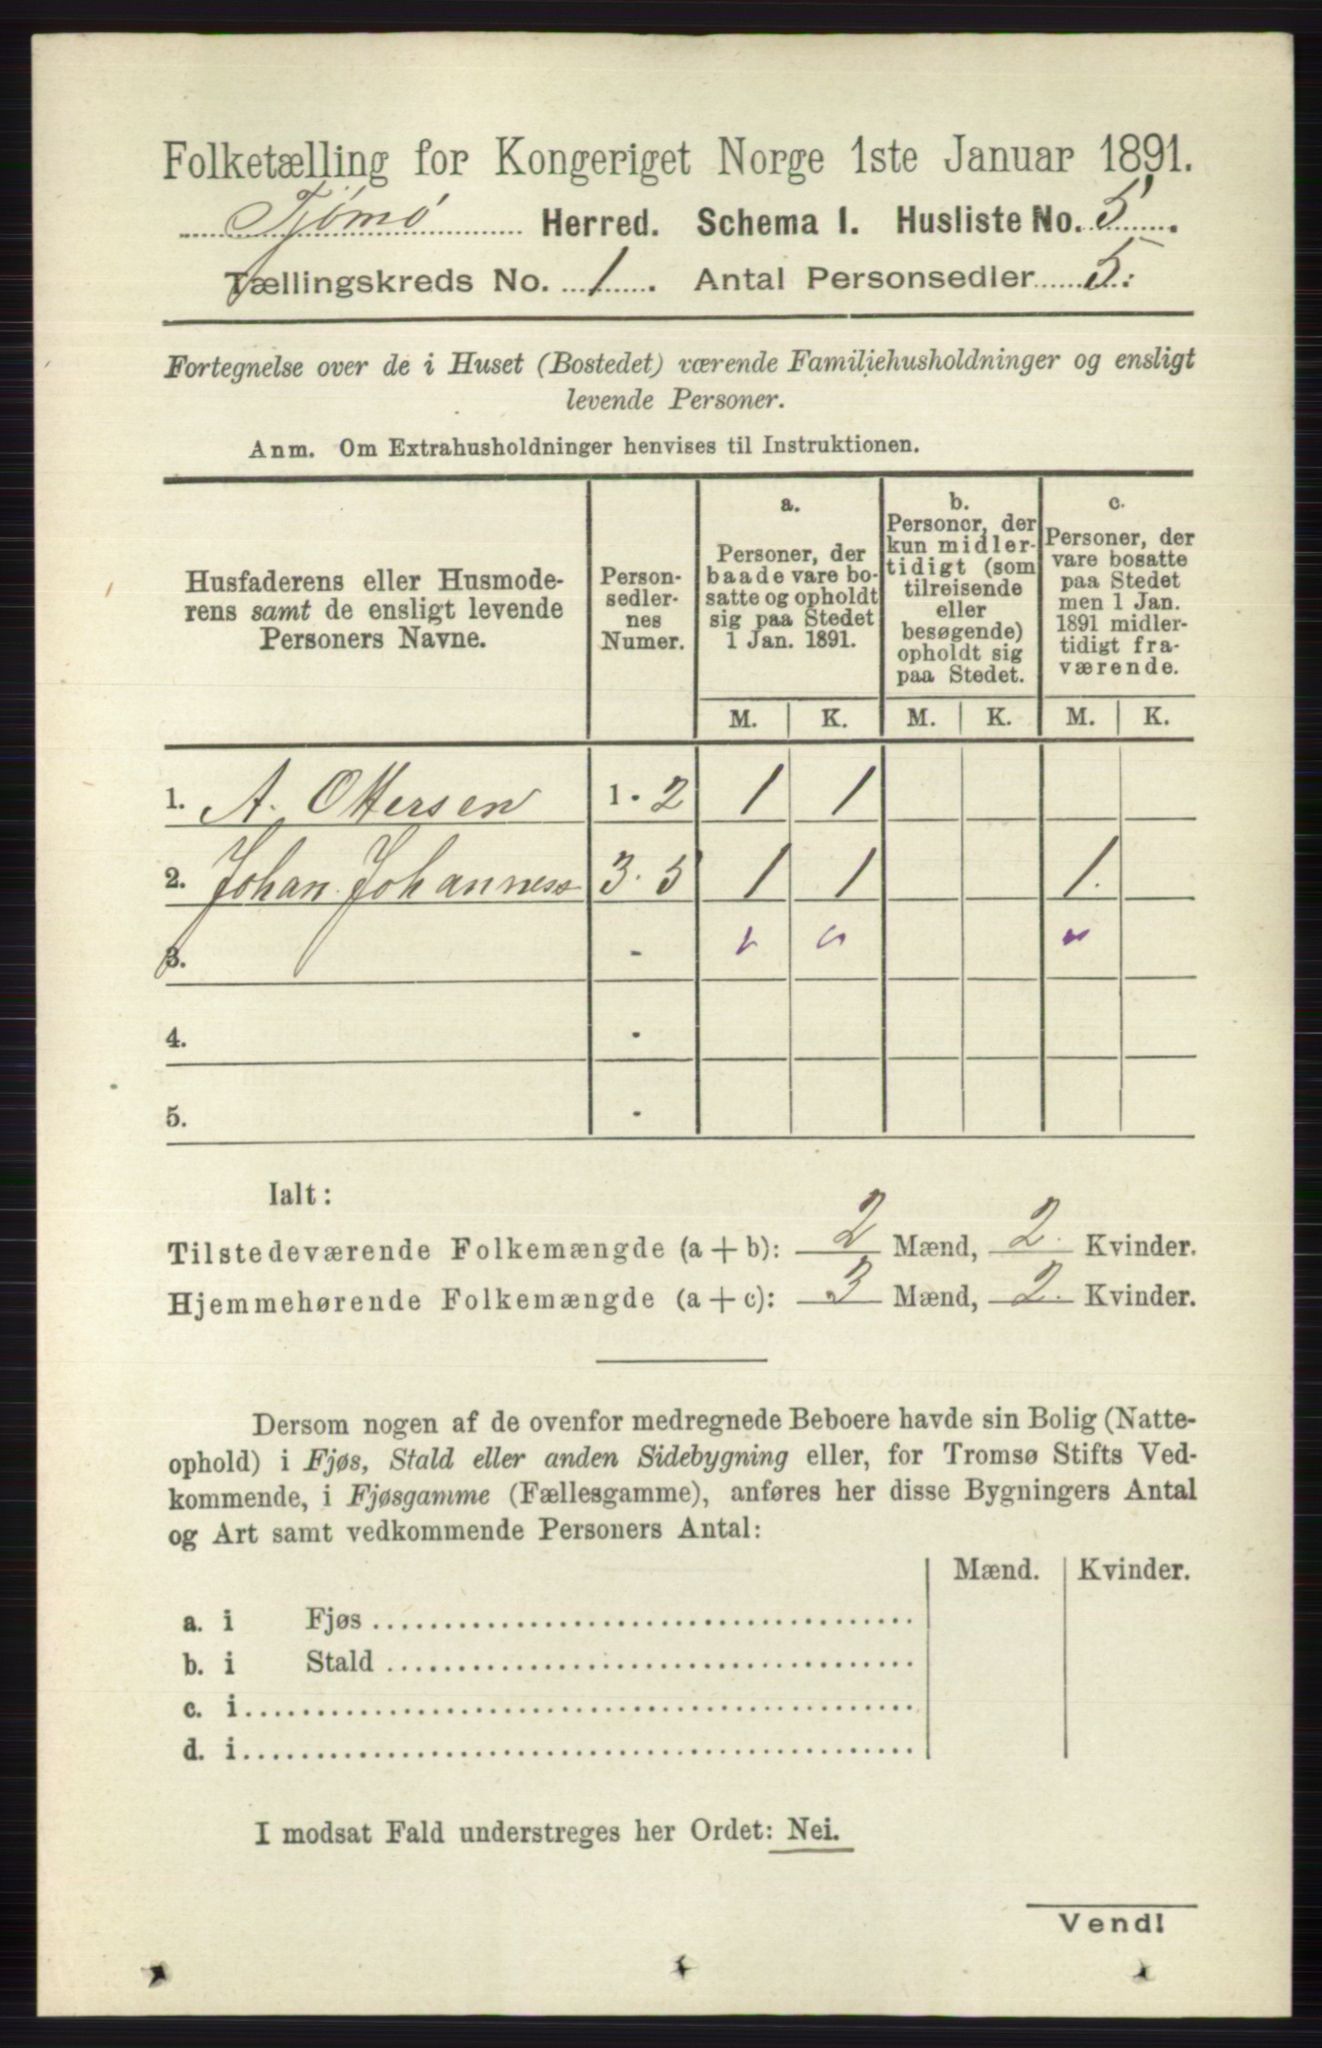 Folketælling for Kongeriget Norge 1ste Januar 1891.
Tjømø Herred. Schema I. Husliste No. 5.
Tællingskreds No. 1. Antal Personsedler 5.
Fortegnelse over de i Huset (Bostedet) værende Familiehusholdninger og ensligt
levende Personer.
Anm. Om Extrahusholdninger henvises til Instruktionen.
Husfaderens eller Husmode-
rens samt de ensligt levende
Personers Navne.
Person-
sedler-
nes
Numer.
a.
Personer, der
baade vare bo-
satte og opholdt
sig paa Stedet
1 Jan. 1891.
b.
Personer, der
kun midler-
tidigt (som
tilreisende
eller
besøgende)
opholdt sig
paa Stedet.
c.
Personer, der
vare bosatte
paa Stedet
men 1 Jan.
1891 midler-
tidigt fra-
værende.
M. K. M. K. M. K.
1. A. Ottersen 1 - 2 1 1
2. Johan Johanness 3 - 5 1 1 1.
3. -
4. -
5. -
Ialt:
Tilstedeværende Folkemængde (a + b): 2 Mænd, 2. Kvinder.
Hjemmehørende Folkemængde (a + c): 3 Mænd, 2. Kvinder.
Dersom nogen af de ovenfor medregnede Beboere havde sin Bolig (Natte-
ophold) i Fjøs, Stald eller anden Sidebygning eller, for Tromsø Stifts Ved-
kommende, i Fjøsgamme (Fællesgamme), anføres her disse Bygningers Antal
og Art samt vedkommende Personers Antal:
Mænd. Kvinder.
a. i Fjøs
b. i Stald
c. i
d. i
I modsat Fald understreges her Ordet: Nei.
Vend!